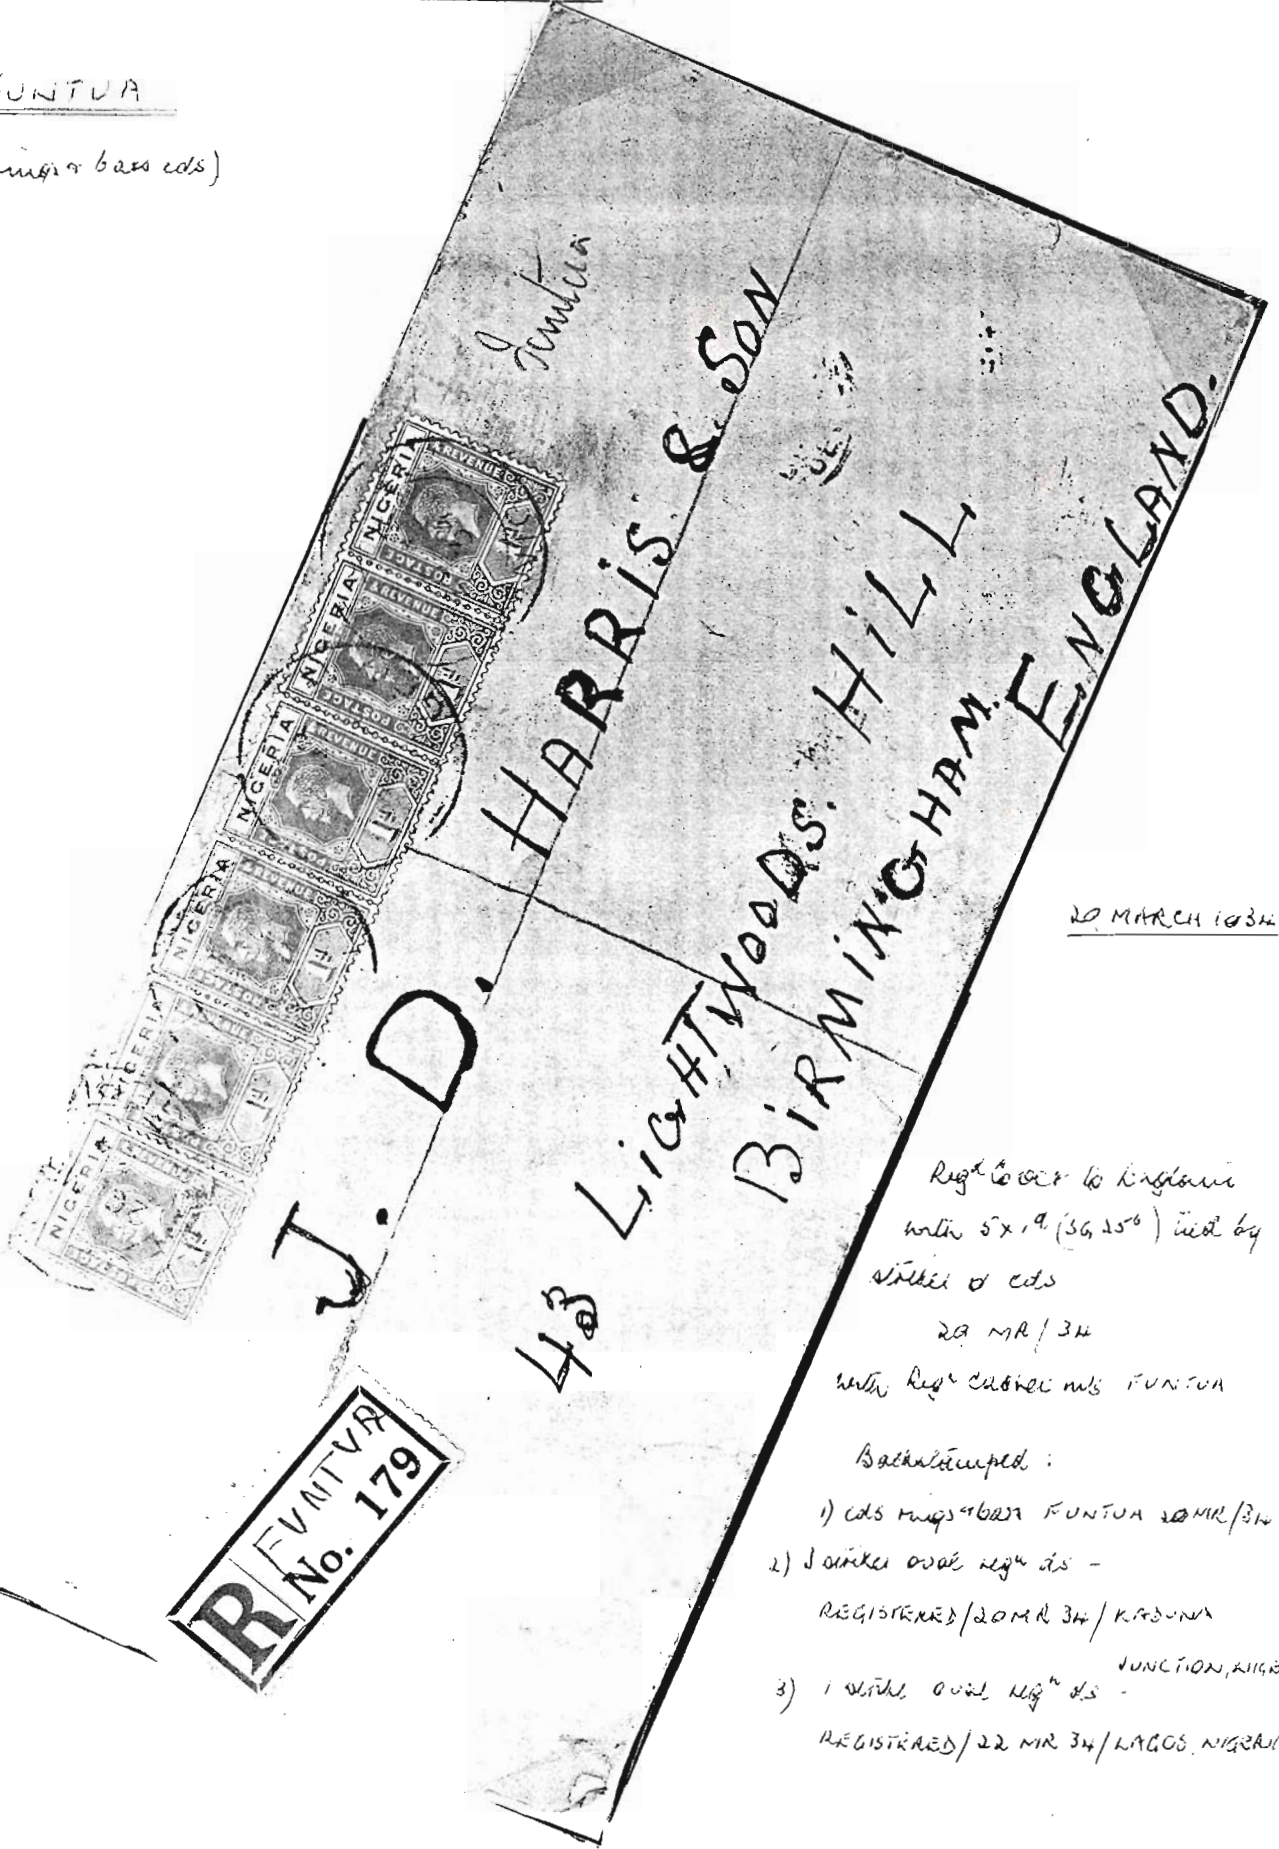 FUNTUA
bars cds)
Funtua
NIGERIA POSTAGE & REVENUE 1d
NIGERIA POSTAGE & REVENUE 1d
NIGERIA POSTAGE & REVENUE 1d
NIGERIA POSTAGE & REVENUE 1d
NIGERIA POSTAGE & REVENUE 1d
NIGERIA POSTAGE & REVENUE 1d
J. D. HARRiS & SON
43 LiGHTWOODS. HiLL
BiRMiNGHAM.
ENGLAND.
R FUNTUA
No. 179
20 MARCH 1934
Regd Cover to England
with 5 x 1d (SG 25b) tied by
strikes of cds
20 MR / 34
with Regn m/s FUNTUA
Backstamped :
1) cds rings & bars FUNTUA 20 MR/34
2) 3 strikes oval regn ds -
REGISTERED/20 MR 34/ KADUNA
JUNCTION, NIGE
3) 1 strike oval regn ds -
REGISTERED/22 MR 34/ LAGOS, NIGERIA